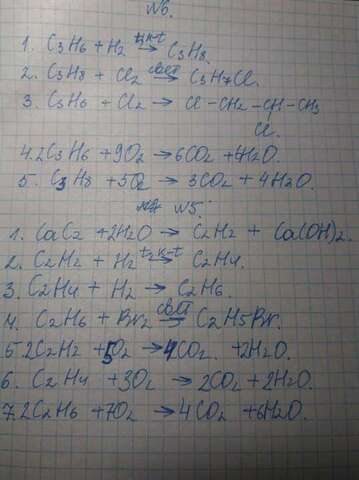 №6.
1. C3H6 + H2 t,к-t→ C3H8.
2. C3H8 + Cl2 свет→ C3H7Cl.
3. C3H6 + Cl2 → Cl-CH2-CH-CH3
Cl.
4. 2C3H6 + 9O2 → 6CO2 + 6H2O.
5. C3H8 + 5O2 → 3CO2 + 4H2O.
№5.
1. CaC2 + 2H2O → C2H2 + Ca(OH)2.
2. C2H2 + H2 t,к-t→ C2H4.
3. C2H4 + H2 → C2H6.
4. C2H6 + Br2 свет→ C2H5Br.
5. 2C2H2 + 5O2 → 4CO2 + 2H2O.
6. C2H4 + 3O2 → 2CO2 + 2H2O.
7. 2C2H6 + 7O2 → 4CO2 + 6H2O.